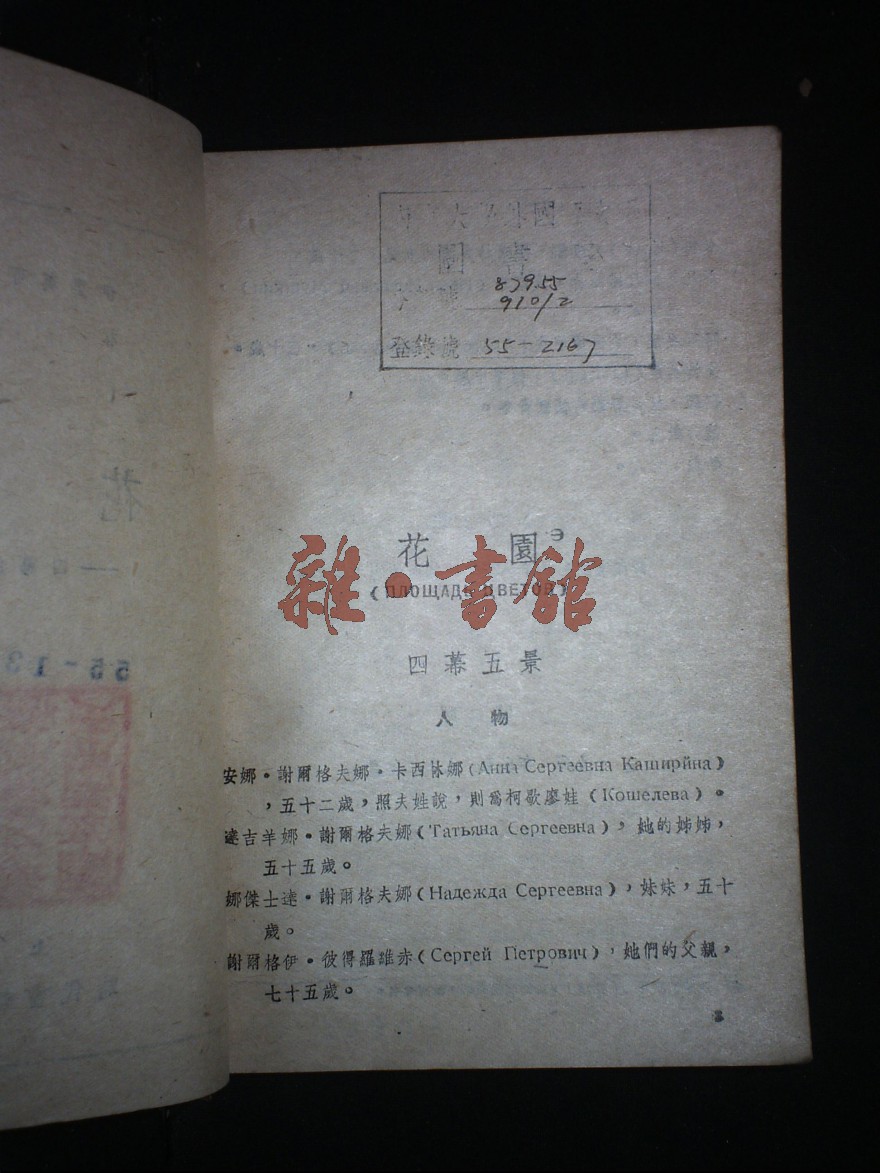 圖書
879.55
910/2
登錄號 55-2167
花 園
(ПЛОЩАДЬ ЦВЕТОВ)
雜·書館
四幕五景
人 物
安娜·謝爾格夫娜·卡西林娜(Анна Сергеевна Каширйна)
,五十二歲,照夫姓說,則爲柯歌廖娃(Кошелева)。
達吉羊娜·謝爾格夫娜(Татьяна Сергеевна),她的姊姊,
五十五歲。
娜傑士達·謝爾格夫娜(Надежда Сергеевна),妹妹,五十
歲。
謝爾格伊·彼得羅維赤(Сергей Петрович),她們的父親,
七十五歲。
3
花
55-13